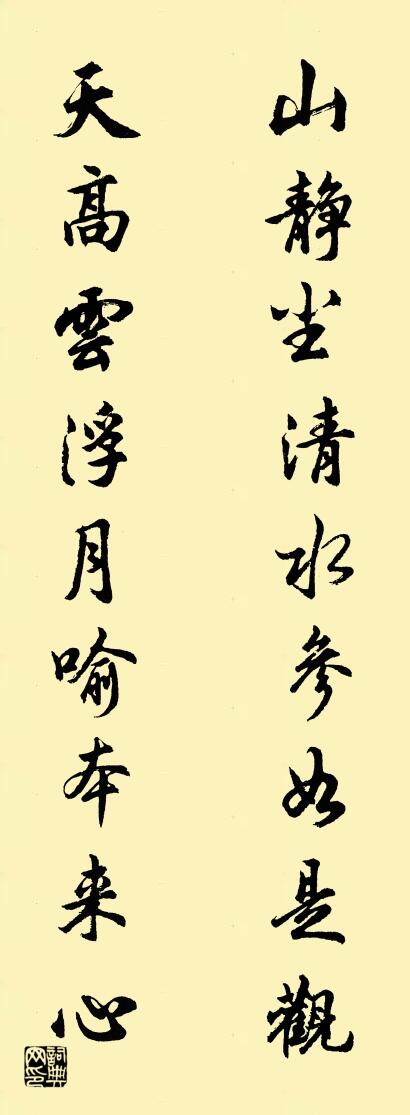 山靜坐清水參如是觀
天高雲浮月喻本来心
詞典網印